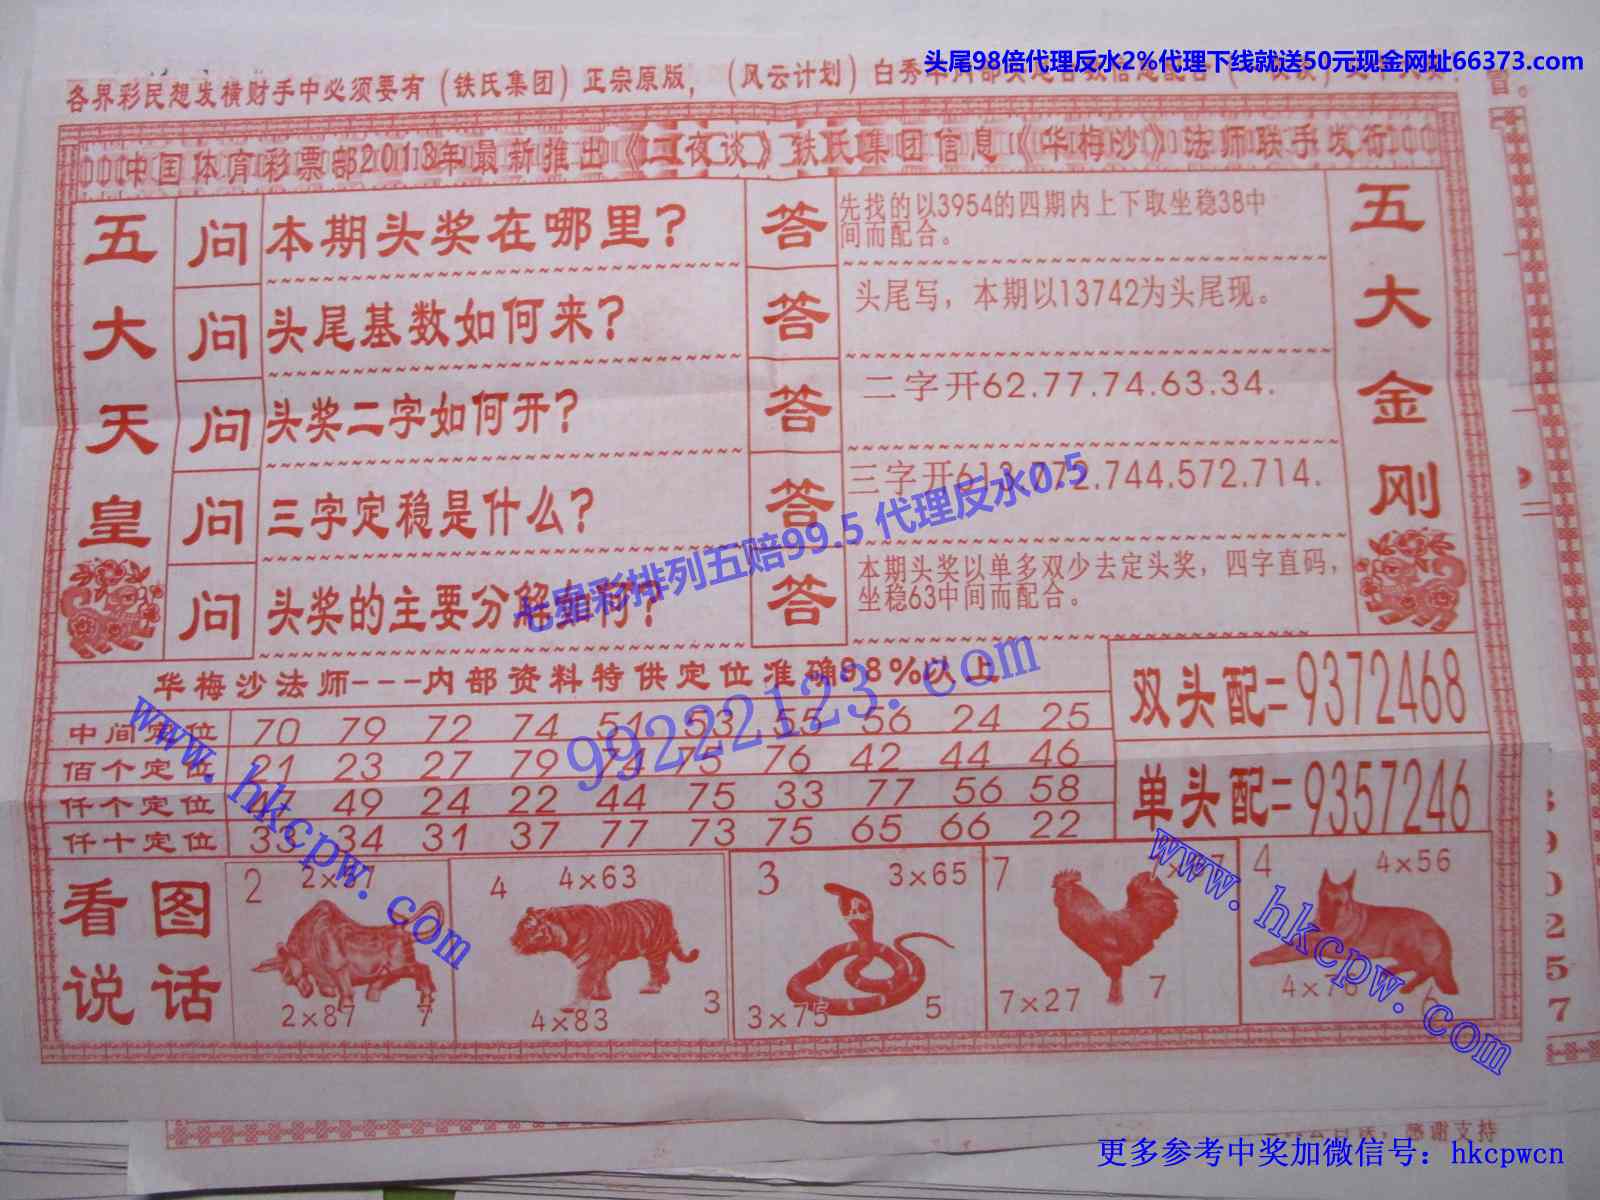 头尾98倍代理反水2%代理下线就送50元现金网址66373.com
各界彩民想发横财手中必须要有（铁氏集团）正宗原版，（风云计划）白秀
中国体育彩票部2013年最新推出《二夜谈》铁氏集团信息《华梅沙》法师联手发行
五大天皇
问 本期头奖在哪里？
答 先找的以3954的四期内上下取坐稳38中
间而配合。
问 头尾基数如何来？
答 头尾写，本期以13742为头尾现。
问 头奖二字如何开？
答 二字开62.77.74.63.34.
问 三字定稳是什么？
答 三字开613.772.744.572.714.
问 头奖的主要分解如何？
答 本期头奖以单多双少去定头奖，四字直码，
坐稳63中间而配合。
五大金刚
七星彩排列五赔99.5 代理反水0.5
99222123.com
华梅沙法师---内部资料特供定位准确98%以上
中间定位 70 79 72 74 51 53 55 56 24 25
佰个定位 21 23 27 79 74 75 76 42 44 46
仟个定位 47 49 24 22 44 75 33 77 56 58
仟十定位 33 34 31 37 77 73 75 65 66 22
双头配=9372468
单头配=9357246
www.hkcpw.com
www.hkcpw.com
看图
说话
2
2×87 7
4 4×63
4×83 3
3 3×65
3×75 5
7
7×27 7
4 4×56
4×76
感谢支持
更多参考中奖加微信号：hkcpwcn